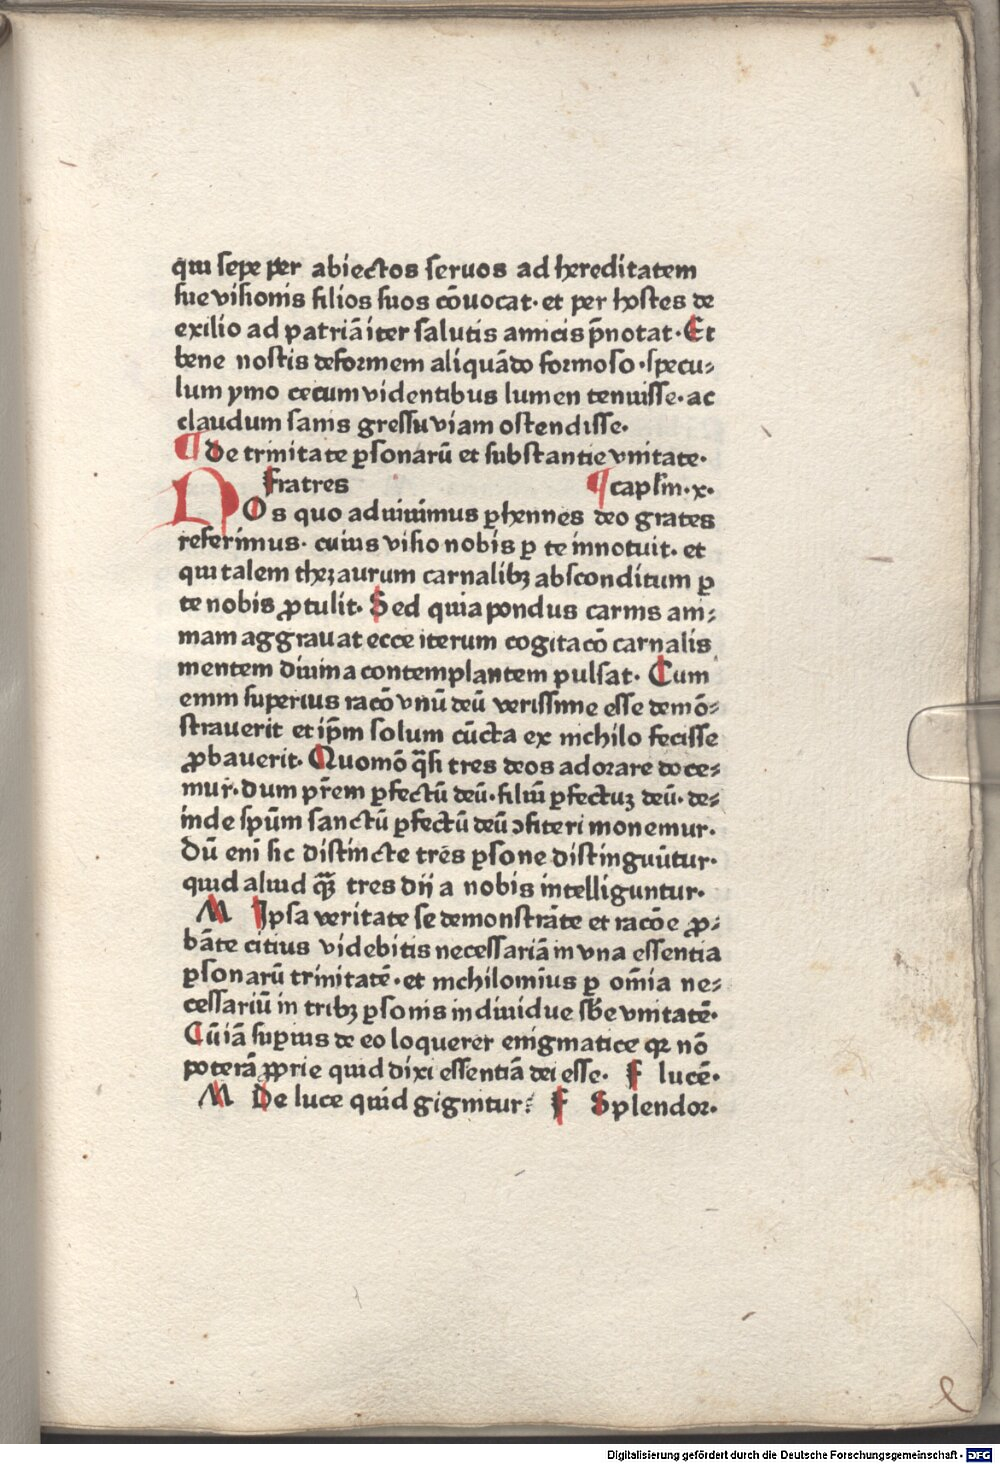 qui sepe per abiectos seruos ad hereditatem
sue visionis filios suos cōuocat· et per hostes de
exilio ad patriā iter salutis amicis p̄notat· Et
bene nostis deformem aliquādo formoso· specu⸗
lum ymo cecum videntibus lumen tenuisse· ac
claudum sanis gressu viam ostendisse·
¶ De trinitate ꝑsonarū et substantie vnitate·
Fratres ¶ capl̄m· x·
NOs quo aduiuimus ꝑhennes deo grates
referimus· cuius visio nobis ꝑ te innotuit· et
qui talem thezaurum carnalibꝫ absconditum ꝑ
te nobis ꝓtulit· Sed quia pondus carnis ani⸗
mam aggrauat ecce iterum cogitacō carnalis
mentem diuina contemplantem pulsat· Cum
enim superius racō vnū deū verissime esse demō⸗
strauerit et ip̄m solum cūcta ex nichilo fecisse
ꝓbauerit· Quomō q̄si tres deos adorare doce⸗
mur· dum pr̄em ꝑfectū deū· filiū ꝑfectuꝫ deū· de⸗
inde sp̄um sanctū ꝑfectū deū ꝯfiteri monemur·
Dū eni̅ sic distincte tres ꝑsone distinguūtur·
quid aliud q̄ꝫ tres dij a nobis intelliguntur·
M Ipsa veritate se demonstrāte et racōe ꝓ⸗
bāte citius videbitis necessariā in vna essentia
ꝑsonarū trinitatē· et nichilomi̅us ꝑ om̄ia ne⸗
cessariū in tribꝫ ꝑsonis indiuidue sb̄e vnitatē·
Cū iā suꝑius de eo loquerer enigmatice qꝛ nō
poterā ꝓprie quid dixi essentiā dei esse· F lucē·
M De luce quid gignitur: F Splendor·
Digitalisierung gefördert durch die Deutsche Forschungsgemeinschaft · DFG